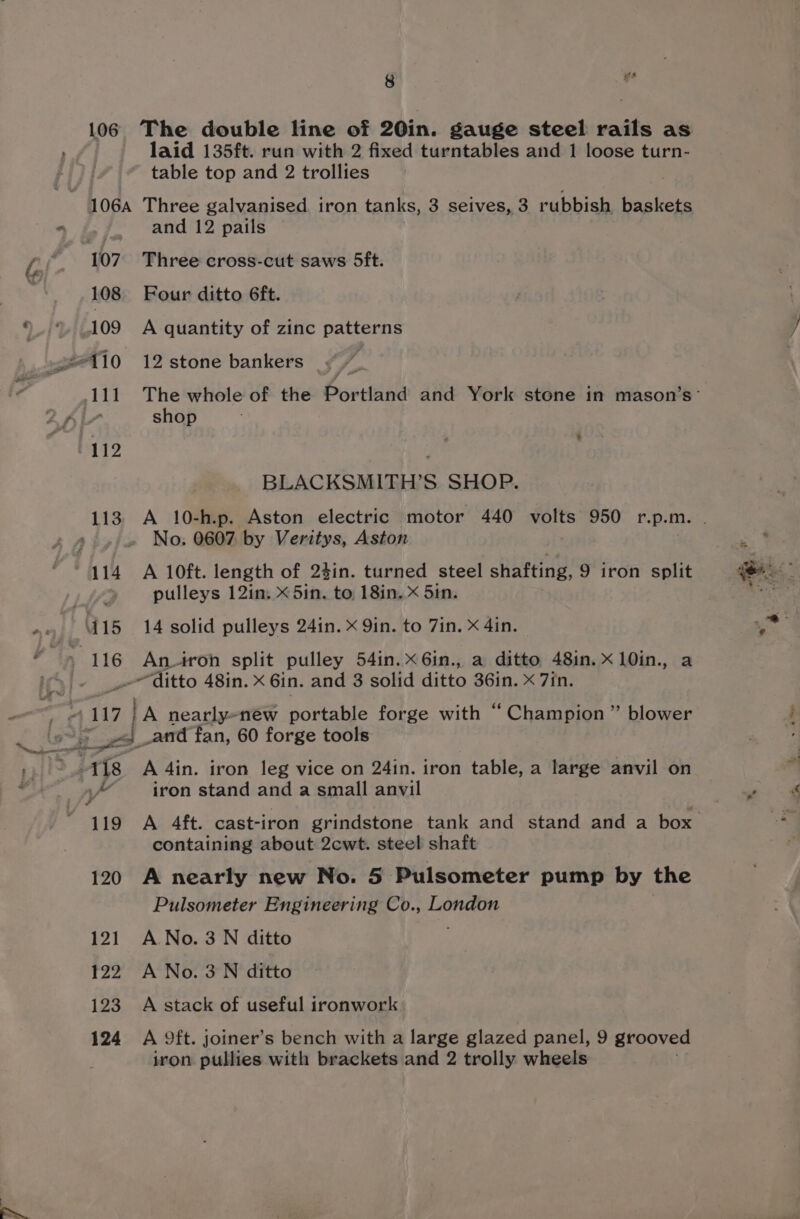 8
106 The double line of 20in. gauge steel rails as
laid 135ft. run with 2 fixed turntables and 1 loose turn-
table top and 2 trollies
106A Three galvanised iron tanks, 3 seives, 3 rubbish baskets
and 12 pails
107 Three cross-cut saws 5ft.
108 Four ditto 6ft.
109 A quantity of zinc patterns
110 12 stone bankers
111 The whole of the Portland and York stone in mason's
shop
112
BLACKSMITH'S SHOP.
113 A 10-h.p. Aston electric motor 440 volts 950 r.p.m.
No. 0607 by Veritys, Aston
114 A 10ft. length of 2½in. turned steel shafting, 9 iron split
pulleys 12in. × 5in. to 18in. × 5in.
115 14 solid pulleys 24in. × 9in. to 7in. × 4in.
116 An iron split pulley 54in. × 6in., a ditto 48in. × 10in., a
ditto 48in. × 6in. and 3 solid ditto 36in. × 7in.
117 A nearly-new portable forge with “Champion” blower
and fan, 60 forge tools
118 A 4in. iron leg vice on 24in. iron table, a large anvil on
iron stand and a small anvil
119 A 4ft. cast-iron grindstone tank and stand and a box
containing about 2cwt. steel shaft
120 A nearly new No. 5 Pulsometer pump by the
Pulsometer Engineering Co., London
121 A No. 3 N ditto
122 A No. 3 N ditto
123 A stack of useful ironwork
124 A 9ft. joiner's bench with a large glazed panel, 9 grooved
iron pullies with brackets and 2 trolly wheels